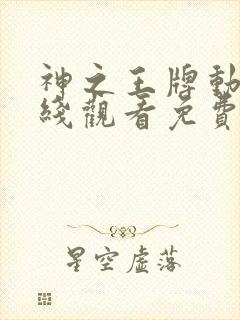 神之王牌動
綫觀看免費
星空虛落